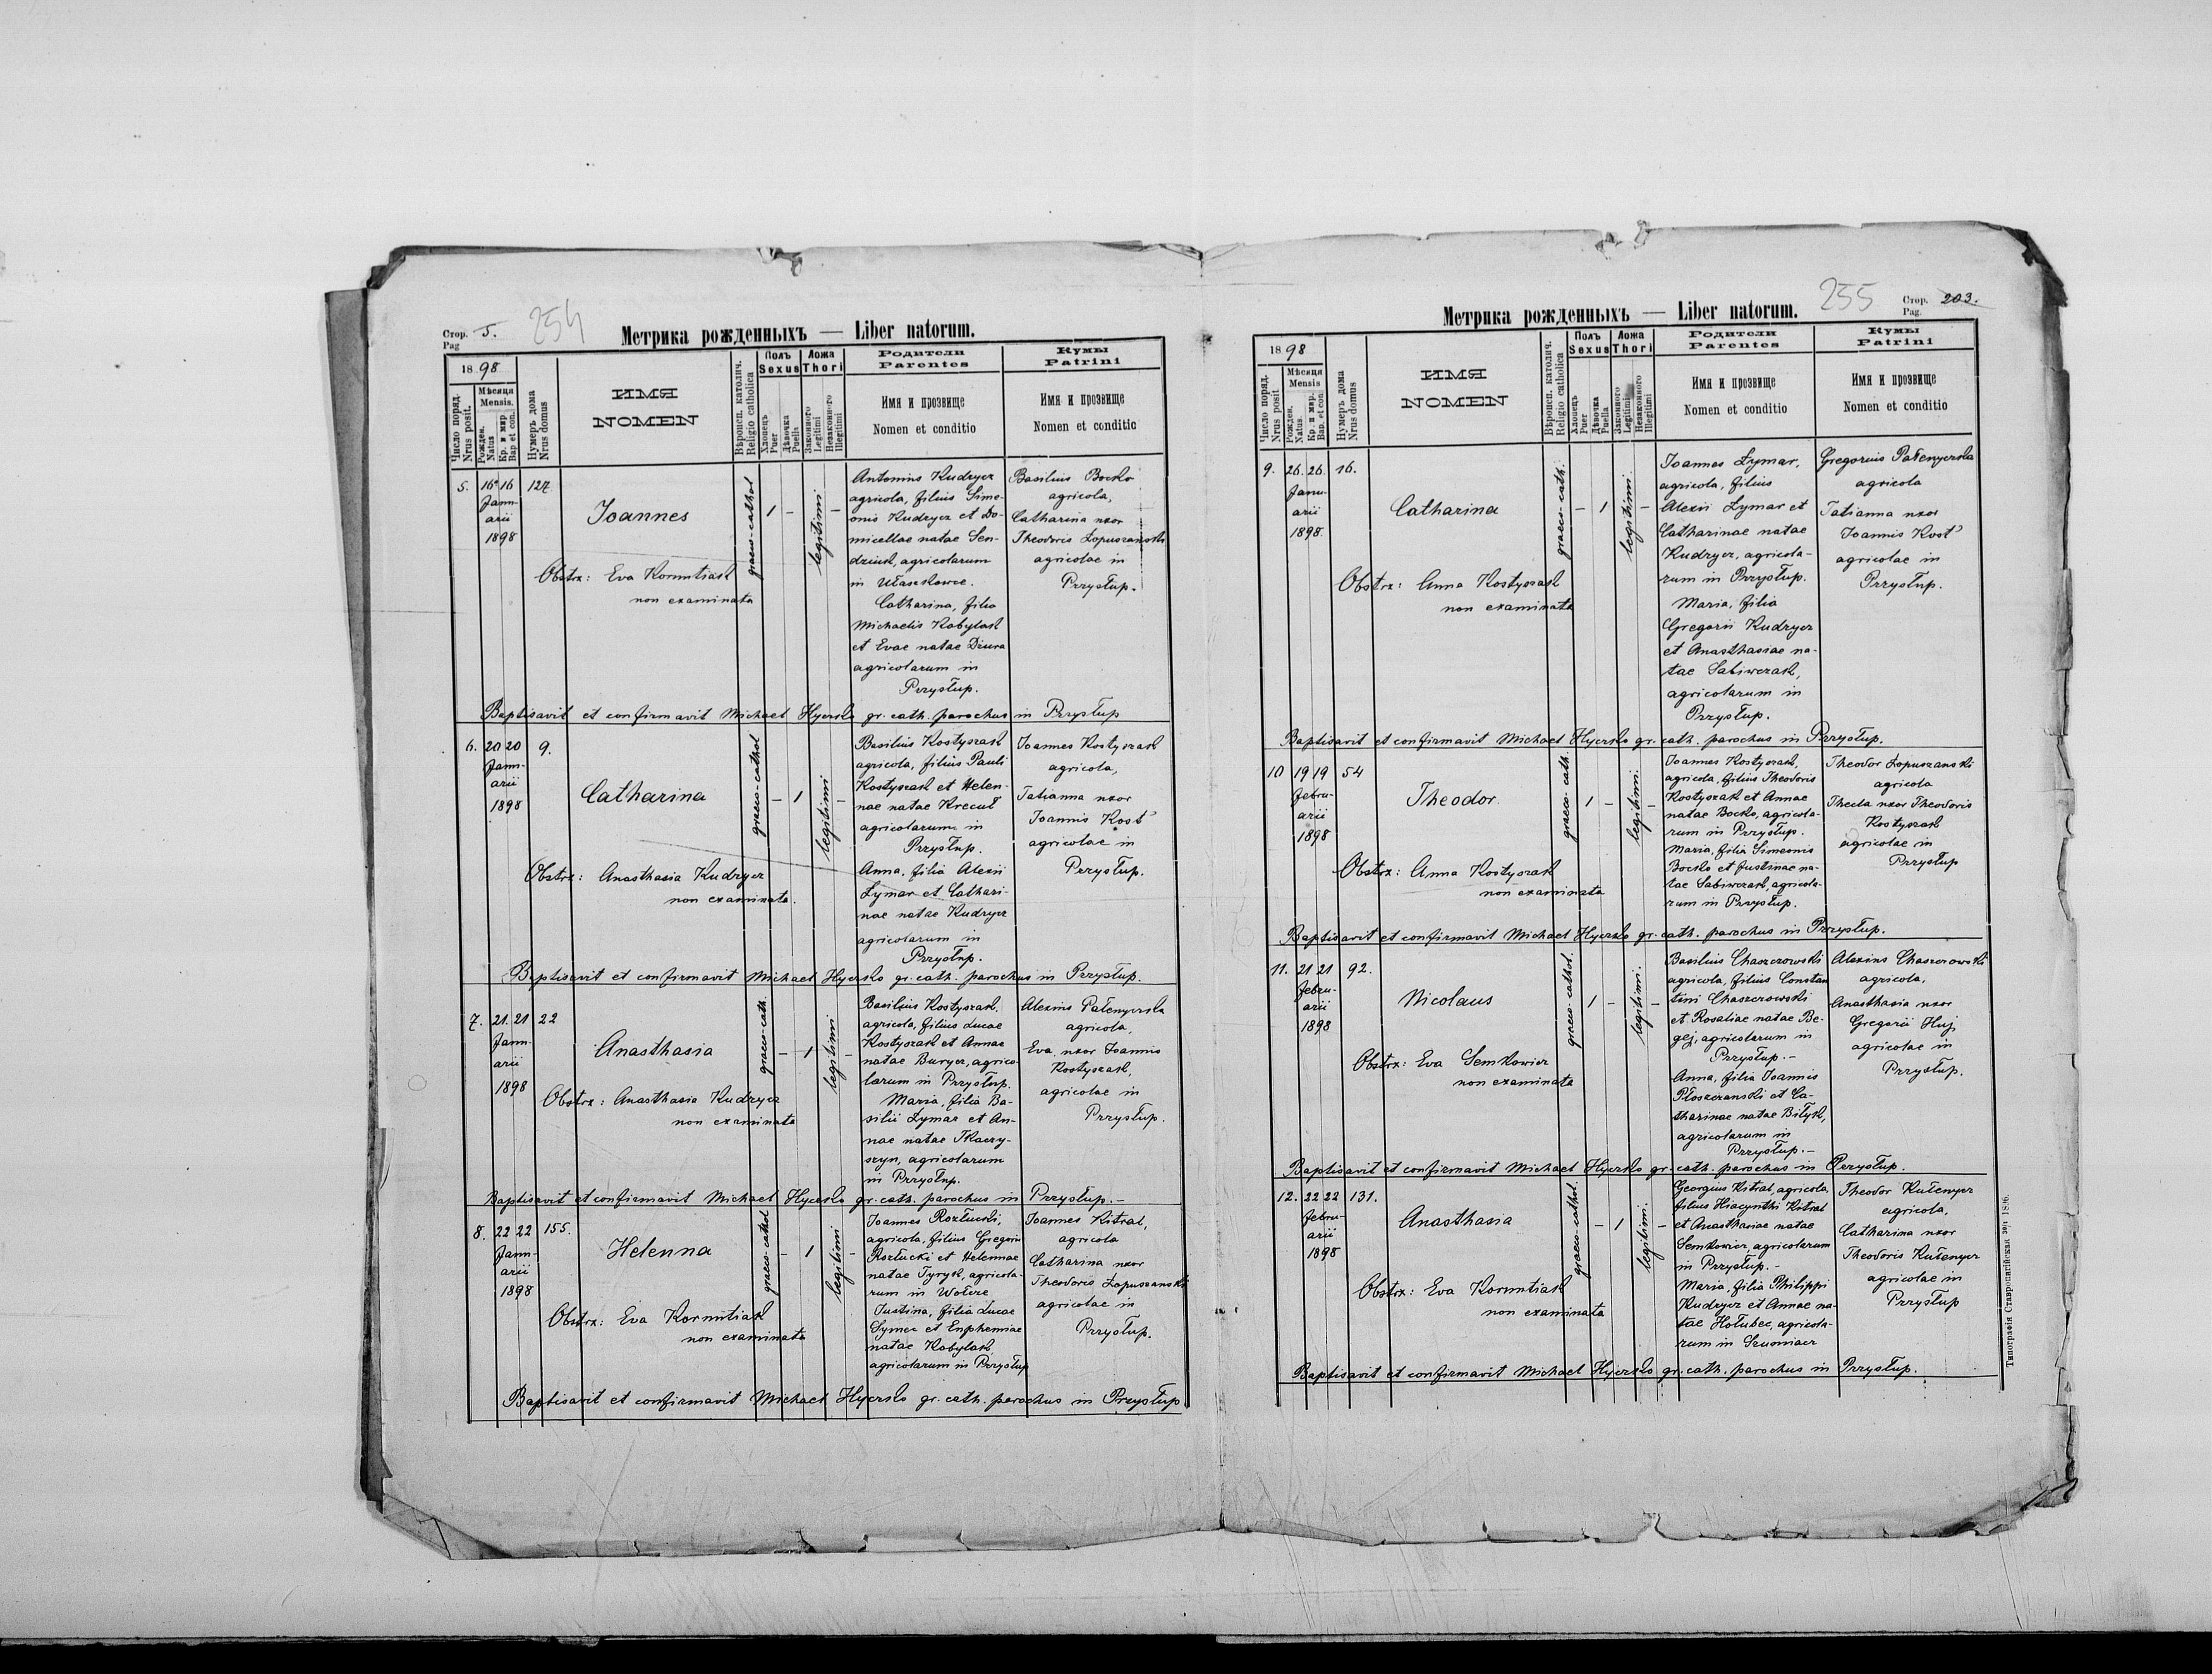 Стор. 5.
Pag
254
Метрика рожденныхъ — Liber natorum.
1898
Число поряд.
Nrus posit.
Мѣсяця
Mensis.
Рожден.
Natus
Кр. и мир.
Bap et con.
Нумеръ дома
Nrus domus
ИМЯ
NOMEN
Вѣроисп. католич.
Religio catholica
Полъ
Sexus
Хлопецъ
Puer
Дѣвочка
Puella
Ложа
Thori
Законного
Legitimi
Незаконного
Illegitimi
Родители
Parentes
Имя и прозвище
Nomen et conditio
Кумы
Patrini
Имя и прозвище
Nomen et conditio
5. 16 16 127.
Janu-
arii
1898
Joannes
graeco-cathol
1 –
legitimi
–
Obstrx: Eva Kornutiak
non examinata
Antonius Kudrycz
agricola, filius Sime-
onis Kudrycz et Do-
micellae natae Sen-
dziuk, agricolarum
in Ułaszkowce.
Catharina, filia
Michaelis Kobylak
et Evae natae Dziura
agricolarum in
Przysłup.
Basilius Bocko
agricola,
Catharina uxor
Theodoris Łopuszanski
agricolae in
Przysłup.
Baptisavit et confirmavit Michael Hycrsko gr. cath. parochus in Przysłup
6. 20 20 9.
Janu-
arii
1898
Catharina
graeco-cathol
– 1
legitimi
–
Obstrx: Anasthasia Kudrycz
non examinata.
Basilius Kostyszak
agricola, filius Pauli
Kostyszak et Helen-
nae natae Krecuł
agricolarum in
Przysłup.
Anna, filia Alexii
Łymar et Cathari-
nae natae Kudrycz
agricolarum in
Przysłup.
Joannes Kostyszak
agricola,
Tatianna uxor
Joannis Kost'
agricolae in
Przysłup.
Baptisavit et confirmavit Michael Hycrsko gr. cath. parochus in Przysłup.
7. 21. 21 22
Janu-
arii
1898
Anasthasia
graeco-cath.
– 1
legitimi
–
Obstrx: Anasthasia Kudrycz
non examinata
Basilius Kostyszak.
agricola, filius Lucae
Kostyszak et Annae
natae Burycz, agrico-
larum in Przysłup.
Maria, filia Ba-
silii Łymar et An-
nae natae Tkaczy-
szyn, agricolarum
in Przysłup.
Alexius Pałenyczka
agricola,
Eva, uxor Joannis
Kostyszak,
agricolae in
Przysłup.
Baptisavit et confirmavit Michael Hycrsko gr. cath. parochus in Przysłup. –
8. 22 22 155.
Janu-
arii
1898
Helenna
graeco-cathol
– 1
legitimi
–
Obstrx: Eva Kornutiak
non examinata
Joannes Rozłucki,
agricola, filius Gregorii
Rozłucki et Helennae
natae Tyryk, agricola-
rum in Wołcze
Justina, filia Lucae
Symec et Euphemiae
natae Kobylak
agricolarum in Przysłup
Joannes Kitral,
agricola
Catharina uxor
Theodoris Łopuszanski
agricolae in
Przysłup.
Baptisavit et confirmavit Michael Hycrsko gr. cath. parochus in Przysłup
255
Стор. 203.
Pag.
Метрика рожденныхъ — Liber natorum.
1898
Число поряд.
Nrus posit
Мѣсяця
Mensis
Рожден.
Natus
Кр. и мир.
Bap. et con
Нумеръ дома
Nrus domus
ИМЯ
NOMEN
Вѣроисп. католич.
Religio catholica
Полъ
Sexus
Хлопецъ
Puer
Дѣвочка
Puella
Ложа
Thori
Законного
Legitimi
Незаконного
Illegitimi
Родители
Parentes
Имя и прозвище
Nomen et conditio
Кумы
Patrini
Имя и прозвище
Nomen et conditio
9. 26. 26. 16.
Janu-
arii
1898.
Catharina
graeco-cath.
– 1
legitimi.
–
Obstrx: Anna Kostyszak
non examinata
Joannes Łymar,
agricola, filius
Alexii Łymar et
Catharinae natae
Kudrycz, agricola-
rum in Przysłup.
Maria, filia
Gregorii Kudrycz
et Anasthasiae na-
tae Sabiwczak,
agricolarum in
Przysłup.
Gregorius Pałenyczka
agricola
Tatianna uxor
Joannis Kost'
agricolae in
Przysłup.
Baptisavit et confirmavit Michael Hycrsko gr. cath. parochus in Przysłup.
10 19 19 54
Febru-
arii
1898
Theodor.
graeco-cath.
1 –
legitimi.
–
Obstrx: Anna Kostyszak
non examinata
Joannes Kostyszak,
agricola, filius Theodoris
Kostyszak et Annae
natae Bocko, agricola-
rum in Przysłup.
Maria, filia Simeonis
Bocko et Justinae na-
tae Sabiwczak, agricola-
rum in Przysłup.
Theodor Łopuszanski
agricola
Thecla uxor Theodoris
Kostyszak
agricolae in
Przysłup
Baptisavit et confirmavit Michael Hycrsko gr. cath. parochus in Przysłup.
11. 21 21 92.
Febru-
arii
1898
Nicolaus
graeco-cathol.
1 –
legitimi.
–
Obstrx: Eva Semkowicz
non examinata
Basilius Chaszczowski
agricola, filius Constan
tini Chaszczowski
et Rosaliae natae Be-
gej, agricolarum in
Przysłup. –
Anna, filia Joannis
Płoszczanski et Ca-
tharinae natae Biłyk,
agricolarum in
Przysłup. –
Alexius Chaszczowski
agricola,
Anasthasia uxor
Gregorii Huj,
agricolae in
Przysłup.
Baptisavit et confirmavit Michael Hycrsko gr. cath. parochus in Przysłup.
12. 22 22 131.
Febru-
arii
1898
Anasthasia
graeco-cathol.
– 1
legitimi.
–
Obstrx: Eva Kornutiak
non examinata
Georgius Kitral, agricola,
filius Hiacynthi Kitral
et Anasthasiae natae
Semkowicz, agricolarum
in Przysłup. –
Maria, filia Philippi
Kudrycz et Annae na-
tae Hołubec, agricola-
rum in Szumiacz
Theodor Kułenycz
agricola,
Catharina uxor
Theodoris Kułenycz
agricolae in
Przysłup
Baptisavit et confirmavit Michael Hycrsko gr. cath. parochus in Przysłup.
Типографія Ставропигійская 1896.